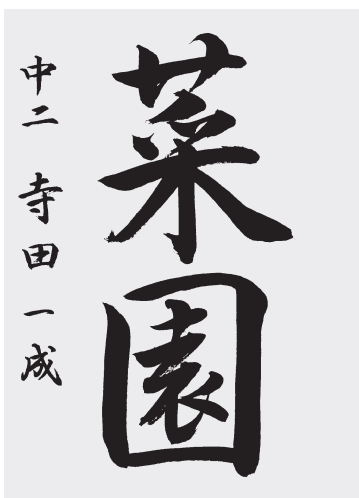 菜園
中二 寺田一成